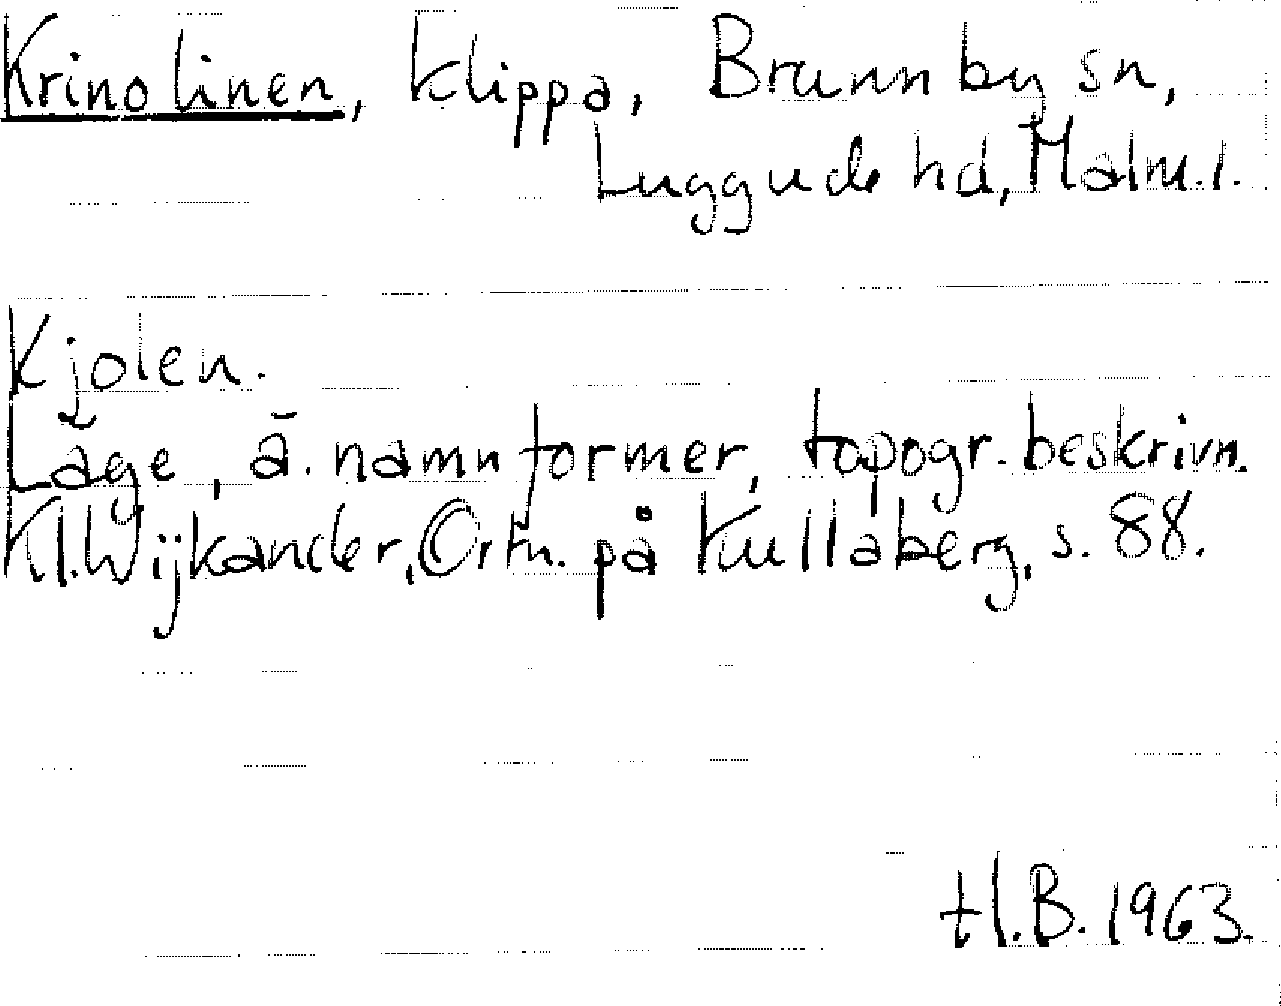 Krinolinen, klippa, Brunnby sn,
Luggude hd, Malm.l.
Kjolen.
Läge, ä. namnformer, topogr. beskrivn.
Kl. Wijkander, Ortn. på Kullaberg, s. 88.
H.B. 1963.